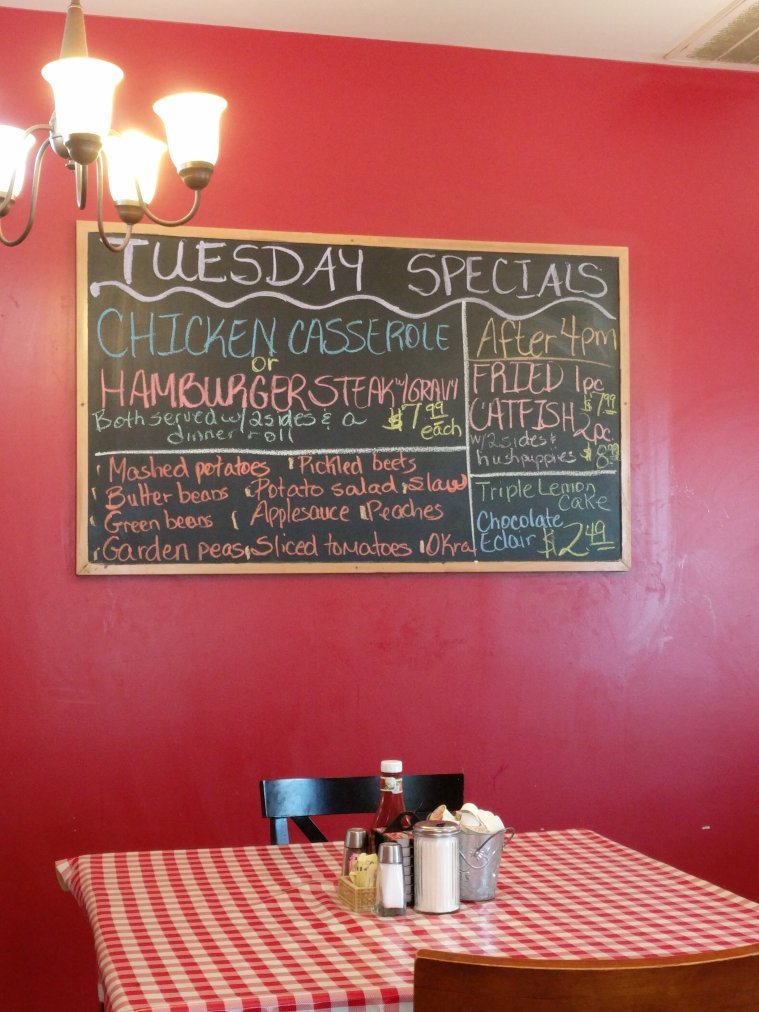 TUESDAY SPECIALS
CHICKEN CASSEROLE
or
HAMBURGER STEAK w/ GRAVY
Both served w/ 2 sides & a
dinner roll
$7.99
each
Mashed potatoes Pickled beets
Butter beans Potato salad Slaw
Green beans Applesauce Peaches
Garden peas Sliced tomatoes Okra
After 4pm
FRIED 1pc.
$7.99
CATFISH 2pc.
w/ 2 sides &
hushpuppies $8.99
Triple Lemon
Cake
Chocolate
Eclair $2.49